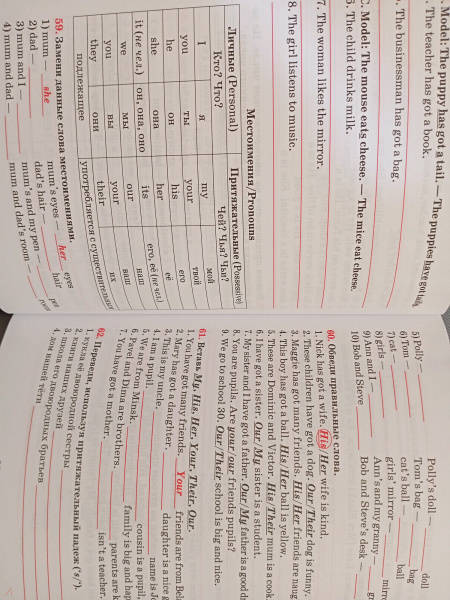 Model: The puppy has got a tail. — The puppies have got tails.
The teacher has got a book.
The businessman has got a bag.
Model: The mouse eats cheese. — The mice eat cheese.
The child drinks milk.
7. The woman likes the mirror.
8. The girl listens to music.
Местоимения/Pronouns
Личные (Personal) Притяжательные (Possessive)
Кто? Что? Чей? Чья? Чьё?
I я my мой
you ты your твой
he он his его
she она her её
it (не чел.) он, она, оно its его, её (не чел.)
we мы our наш
you вы your ваш
they они their их
подлежащее употребляется с существительным
59. Замени данные слова местоимениями.
1) mum — she mum's eyes — her eyes
2) dad — dad's hair — hair
3) mum and I — mum's and my pen —
4) mum and dad — mum and dad's room —
5) Polly — Polly's doll — doll
6) Tom — Tom's bag — bag
7) cat — cat's ball — ball
8) girls — girls' mirror —
9) Ann and I — Ann's and my granny —
10) Bob and Steve Bob and Steve's desk —
60. Обведи правильные слова.
1. Nick has got a wife. His/Her wife is kind.
2. These children have got a dog. Our/Their dog is funny.
3. Maggie has got many friends. His/Her friends are
4. This boy has got a ball. His/Her ball is yellow.
5. These are Dominic and Victor. His/Their mum is a cook.
6. I have got a sister. Our/My sister is a student.
7. My sister and I have got a father. Our/My father is a good
8. You are pupils. Are your/our friends pupils?
9. We go to school 30. Our/Their school is big and nice.
61. Вставь My, His, Her, Your, Their, Our.
1. You have got many friends. Your friends are from
2. Mary has got a daughter. daughter is a nice
3. This is my uncle. name is
4. I am a pupil. cousin is a pupil,
5. We are from Minsk. family is big and
6. Pavel and Dima are brothers. parents are
7. You have got a mother. isn't a teacher.
62. Переведи, используя притяжательный падеж ('s/').
1. кукла её двоюродной сестры
2. книги наших друзей
3. школа моих двоюродных братьев
4. дом нашей тёти